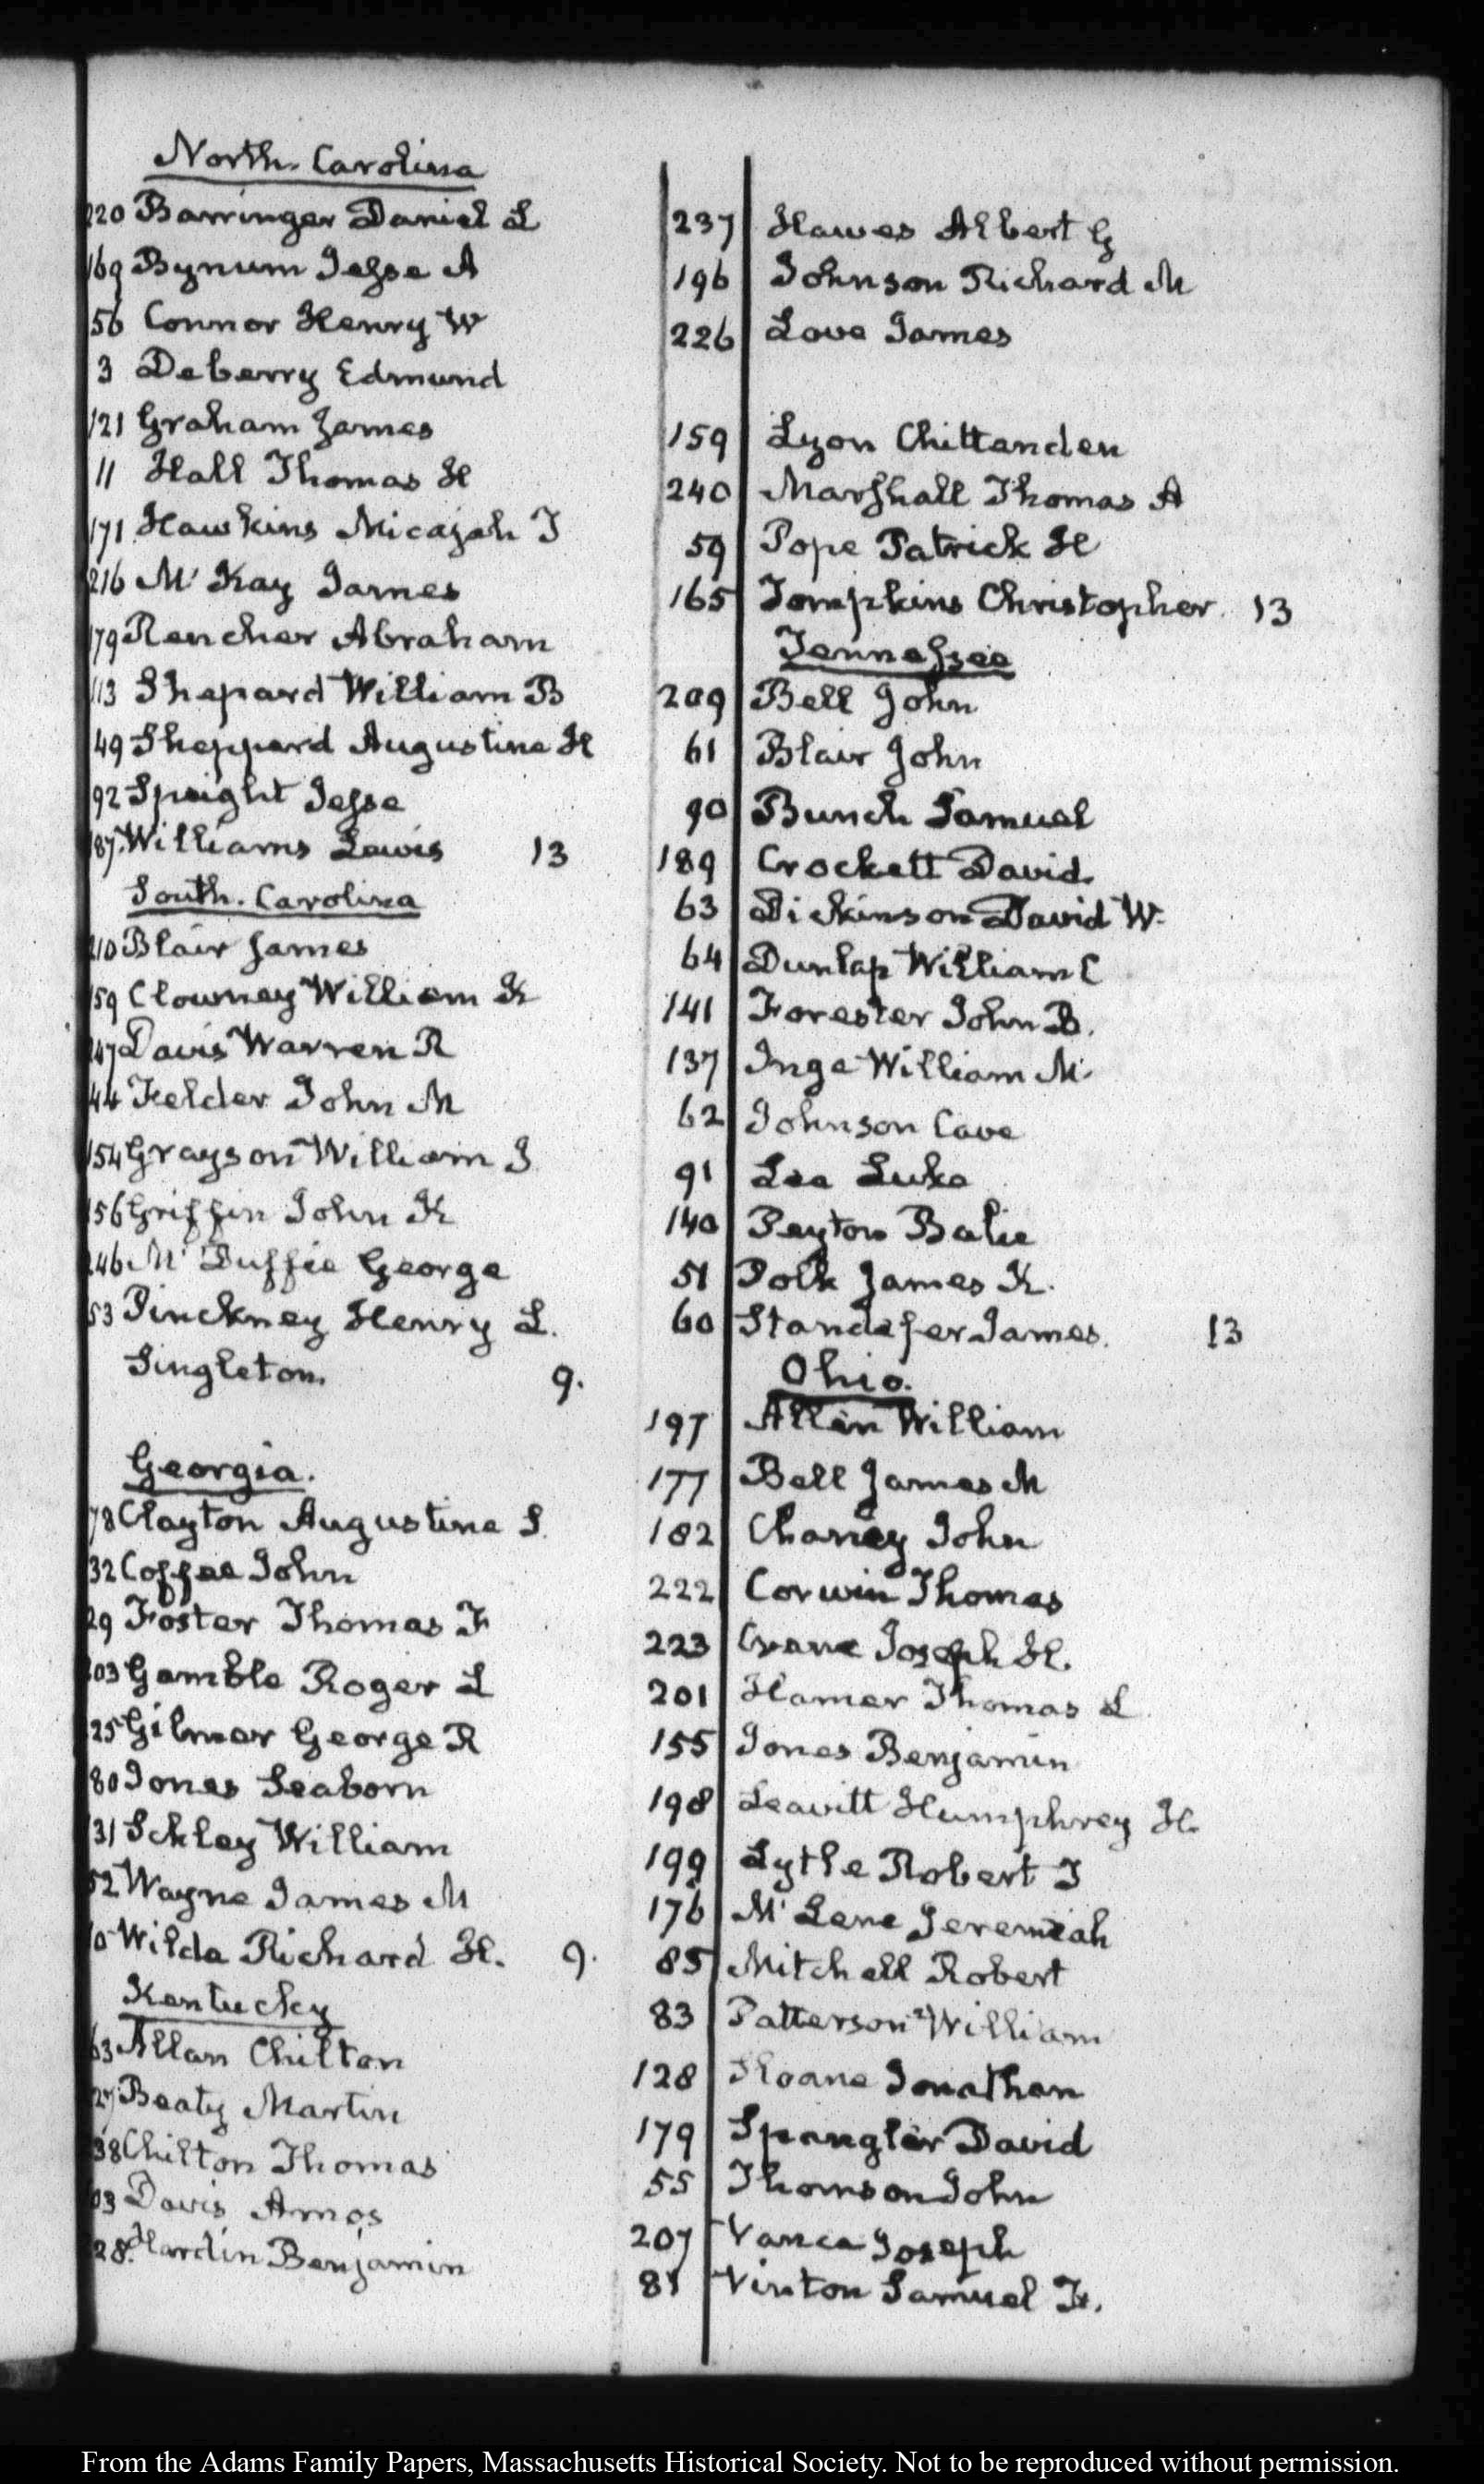 North. Carolina
220 Barringer Daniel L
169 Bynum Jesse A
56 Connor Henry W
3 Deberry Edmund
121 Graham James
11 Hall Thomas H
171 Hawkins Micajah T
216 Mc Kay James
179 Rencher Abraham
113 Shepard William B
49 Sheppard Augustine H
92 Speight Jesse
87. Williams Lewis 13
South. Carolina
210 Blair James
159 Clowney William K
247 Davis Warren R
44 Felder John M
154 Grayson William J
156 Griffin John K
246 Mc Duffie George
53 Pinckney Henry L.
Singleton. 9.
Georgia.
78 Clayton Augustine S.
32 Coffee John
29 Foster Thomas F
203 Gamble Roger L
25 Gilmer George R
80 Jones Seaborn
131 Schley William
52 Wayne James M
0 Wilde Richard H. 9.
Kentucky
63 Allan Chilton
27 Beaty Martin
38 Chilton Thomas
03 Davis Amos
28. Hardin Benjamin
237 Hawes Albert G
196 Johnson Richard M
226 Love James
159 Lyon Chittenden
240 Marshall Thomas A
59 Pope Patrick H
165 Tompkins Christopher. 13
Tennessee
209 Bell John
61 Blair John
90 Bunch Samuel
189 Crockett David.
63 Dickinson David W.
64 Dunlap William C
141 Forester John B.
137 Inge William M.
62 Johnson Cave
91 Lea Luke
140 Peyton Balie
51 Polk James K.
60 Standefer James. 13
Ohio.
197 Allen William
177 Bell James M
182 Chaney John
222 Corwin Thomas
223 Crane Joseph H.
201 Hamer Thomas L
155 Jones Benjamin
198 Leavitt Humphrey H.
199 Lytle Robert T
176 Mc Lene Jeremiah
85 Mitchell Robert
83 Patterson William
128 Sloane Jonathan
179 Spangler David
55 Thomson John
207 Vance Joseph
81 Vinton Samuel F.
From the Adams Family Papers, Massachusetts Historical Society. Not to be reproduced without permission.